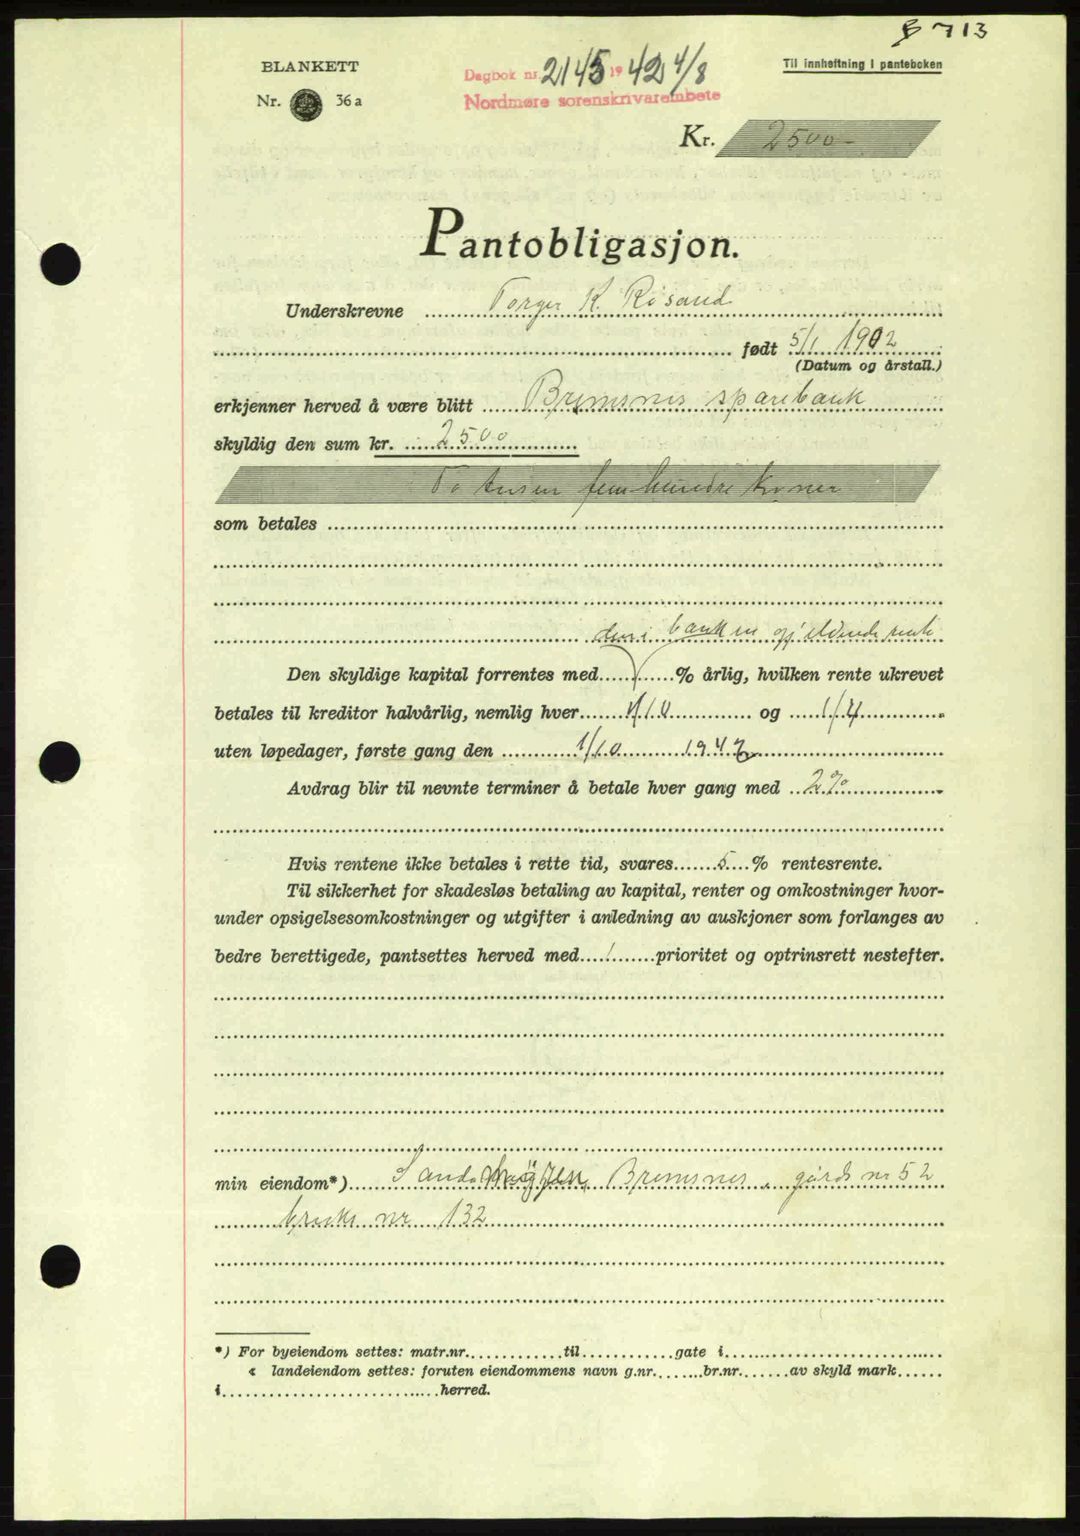 B 713
BLANKETT
Nr. 36 a
Dagbok nr. 2145 1942 4/8
Nordmøre sorenskrivarembete
Til innheftning i panteboken
Kr. 2500-
Pantobligasjon.
Underskrevne Torger K. Røsand
født 5/1 1902
(Datum og årstall.)
erkjenner herved å være blitt Bremsnes sparebank
skyldig den sum kr. 2500
To tusen fem hundre kroner
som betales
den i banken gjeldende rente
Den skyldige kapital forrentes med % årlig, hvilken rente ukrevet
betales til kreditor halvårlig, nemlig hver 1/10 og 1/4
uten løpedager, første gang den 1/10 1942
Avdrag blir til nevnte terminer å betale hver gang med 2%
Hvis rentene ikke betales i rette tid, svares 5 % rentesrente.
Til sikkerhet for skadesløs betaling av kapital, renter og omkostninger hvor-
under opsigelsesomkostninger og utgifter i anledning av auskjoner som forlanges av
bedre berettigede, pantsettes herved med 1 prioritet og optrinsrett nestefter.
min eiendom*) Bremsnes, gårds nr 52
bruks nr 132
*) For byeiendom settes: matr.nr. til gate i
« landeiendom settes: foruten eiendommens navn g.nr. br.nr. av skyld mark
i herred.